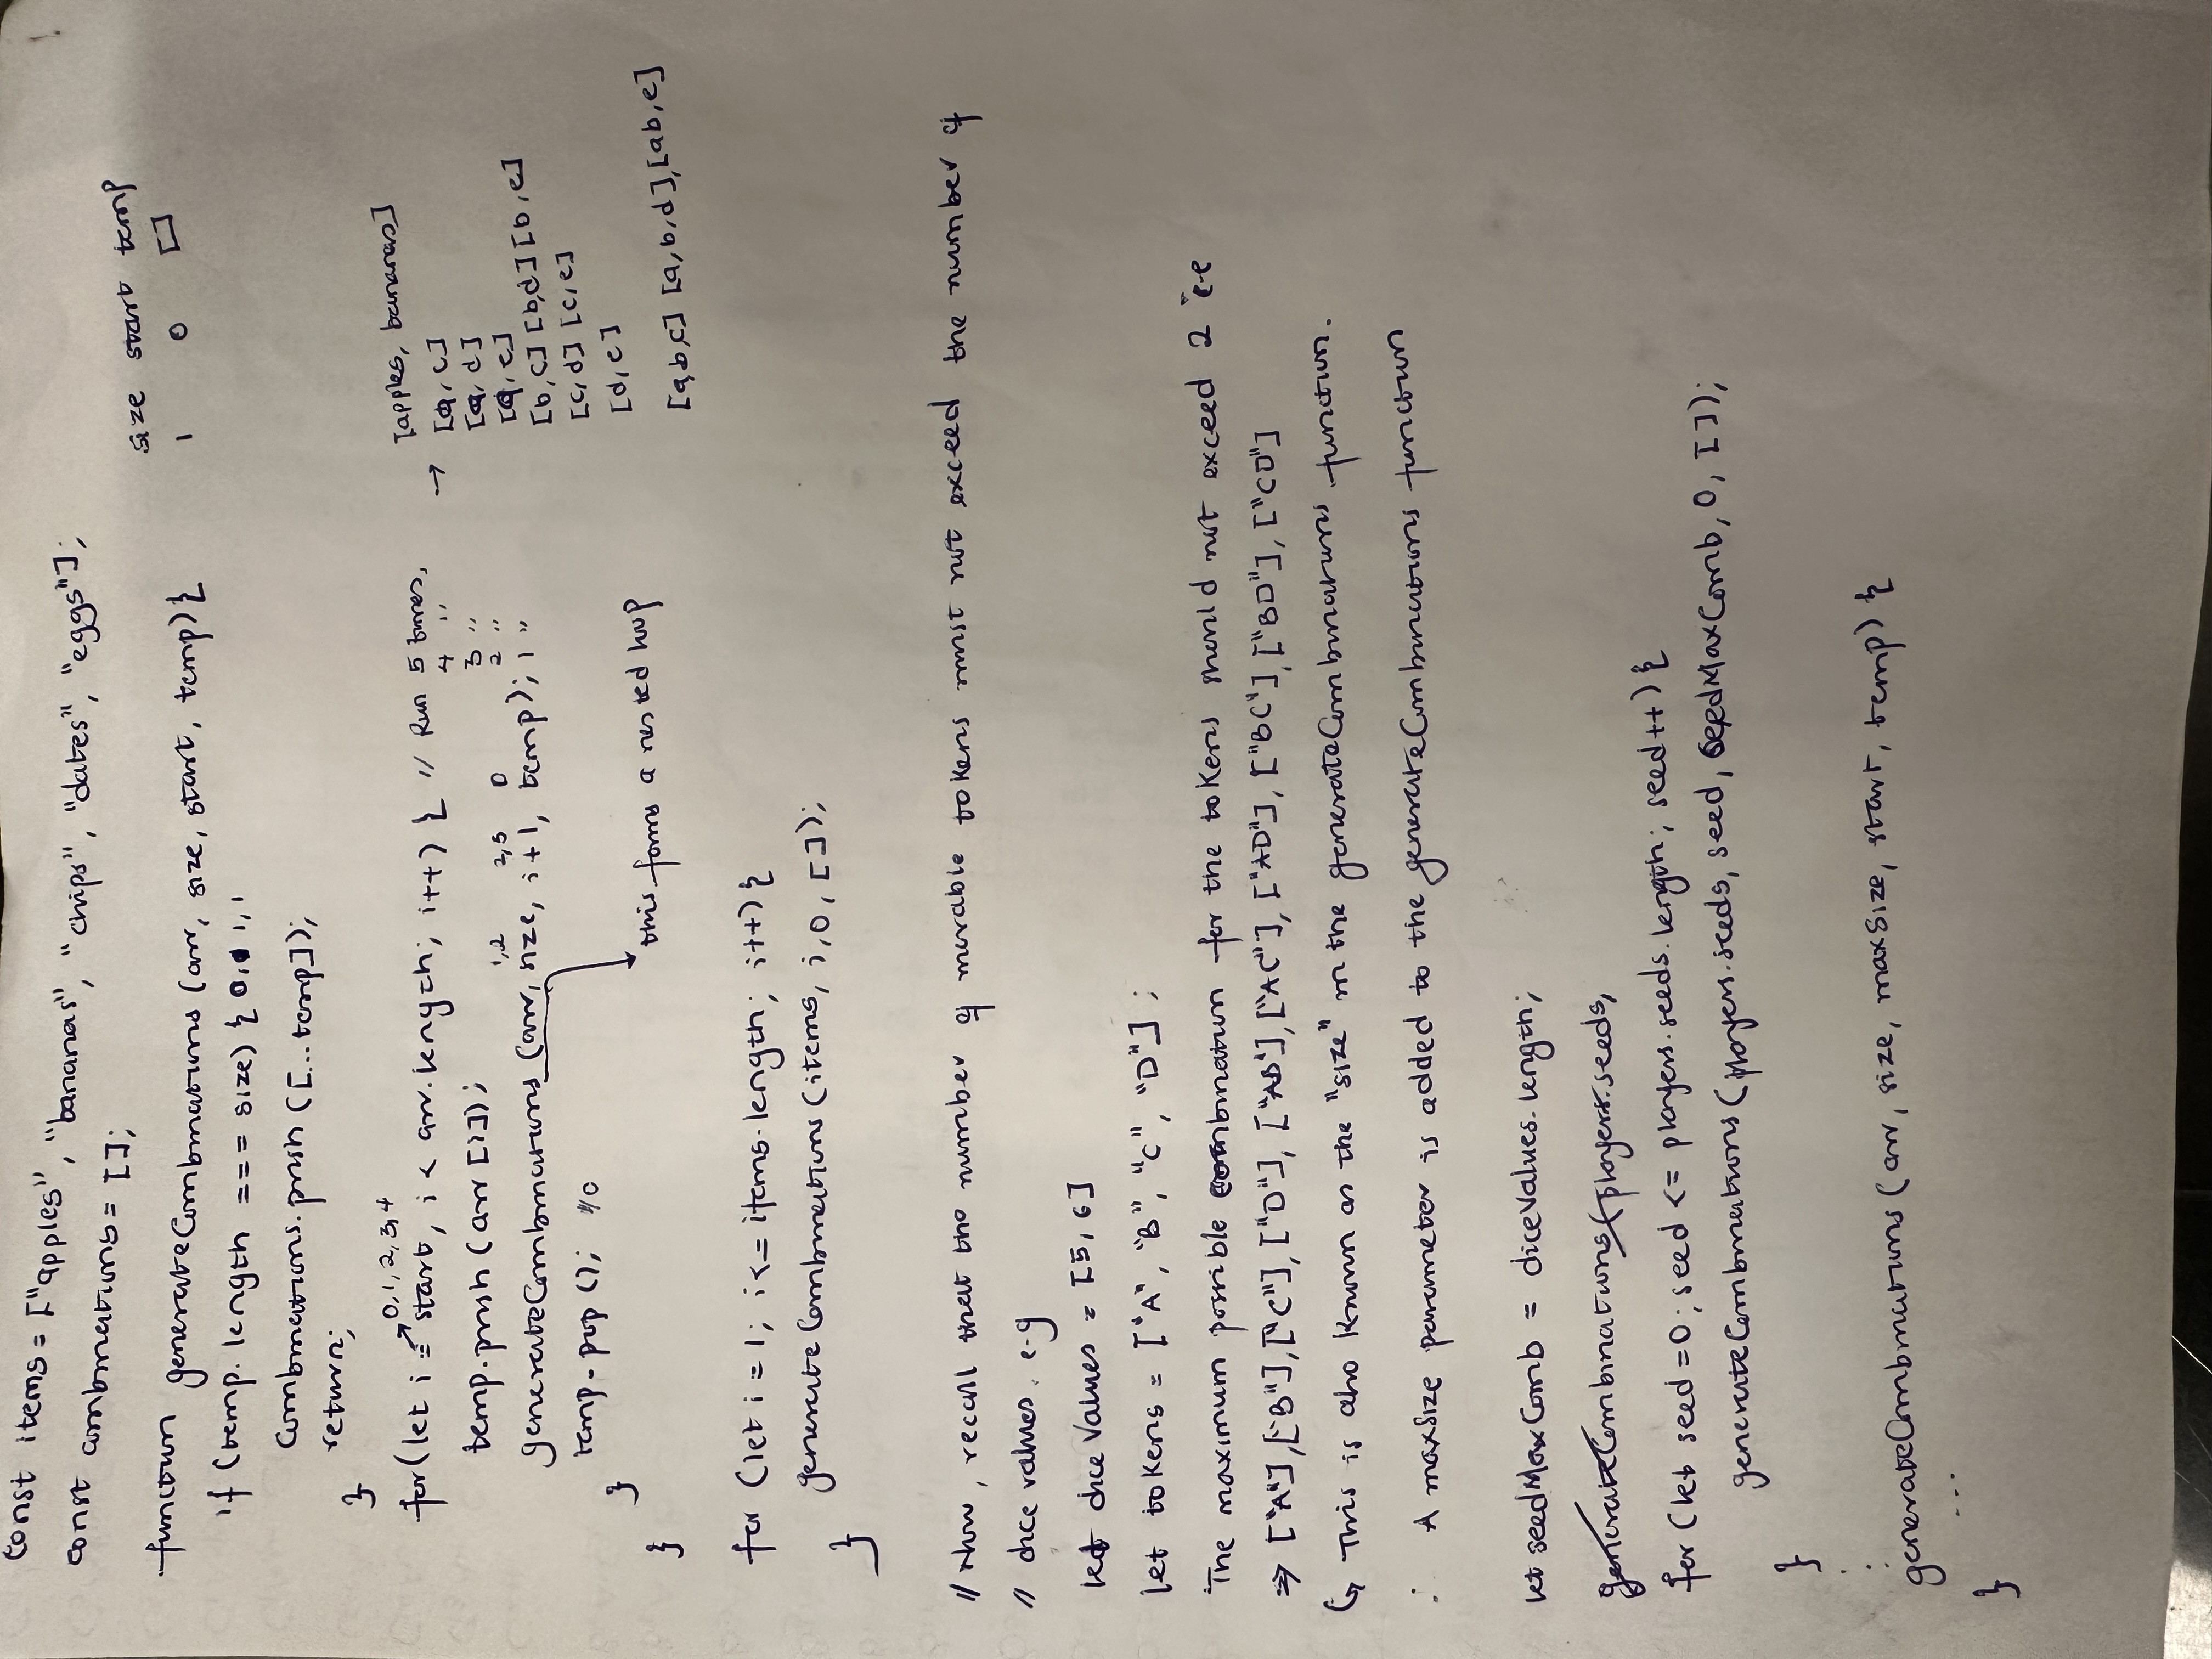 const items = ["apples", "bananas", "chips", "dates", "eggs"];
const combinations = [];
size start temp
function generateCombinations (arr, size, start, temp) {
1 0 []
if (temp.length === size) { 0, 1, 1
combinations.push ([...temp]);
return;
}
0, 1, 2, 3, 4
for (let i = start, i < arr.length; i++) { // Run 5 times,
4 "
temp.push (arr [i]);
3 "
1,2 2,5 0 2 "
generateCombinations (arr, size, i+1, temp); 1 "
temp.pop (); // 0
}
this forms a nested loop
}
[apples, bananas]
→ [a, c]
[a, d]
[a, e]
[b, c] [b,d] [b, e]
[c, d] [c, e]
[d, e]
[a,b,c] [a, b, d], [ab, e]
for (let i = 1; i <= items.length; i++) {
generateCombinations (items, i, 0, []);
}
// Now, recall that the number of movable tokens must not exceed the number of
// dice values. e.g
let diceValues = [5, 6]
let tokens = ["A", "B", "C", "D"];
The maximum possible combination for the tokens should not exceed 2 i.e
⇒ ["A"], ["B"], ["C"], ["D"], ["AB"], ["AC"], ["AD"], ["BC"], ["BD"], ["CD"]
↳ This is also known as the "size" in the generateCombinations function.
∴ A maxSize parameter is added to the generateCombinations function
let seedMaxComb = diceValues.length;
generateCombinations (players.seeds,
for (let seed = 0; seed <= players.seeds.length; seed++) {
generateCombinations (players.seeds, seed, seedMaxComb, 0, []);
}
generateCombinations (arr, size, maxSize, start, temp) {
...
}